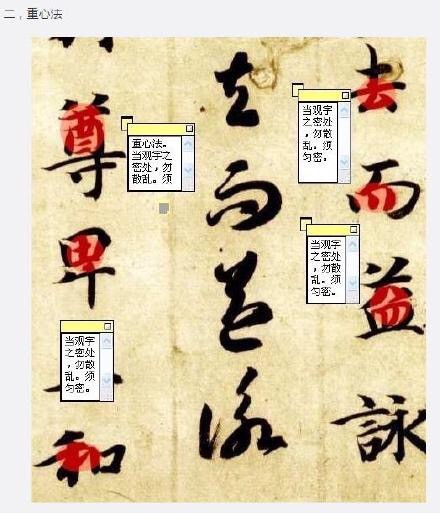 二，重心法
去而益詠
去而益詠
尊卑
和
当观字
之密处
，勿散
乱。须
匀密。
当观字
之密处
，勿散
乱。须
匀密。
重心法。
当观字之
密处，勿
散乱。须
当观字
之密处
，勿散
乱。须
匀密。